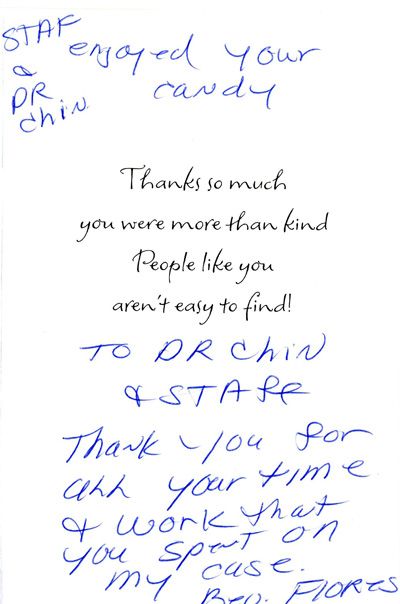 STAF
&
DR
Chin
enjoyed your
candy
Thanks so much
you were more than kind
People like you
aren't easy to find!
TO DR Chin
& STAff
Thank you for
all your time
& work that
you spent on
my case.
FLORES